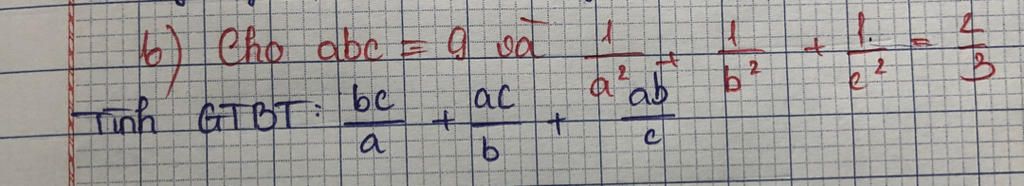 b) Cho abc = 9 và 1/a² + 1/b² + 1/c² = 2/3
Tính GTBT: bc/a + ac/b + ab/c